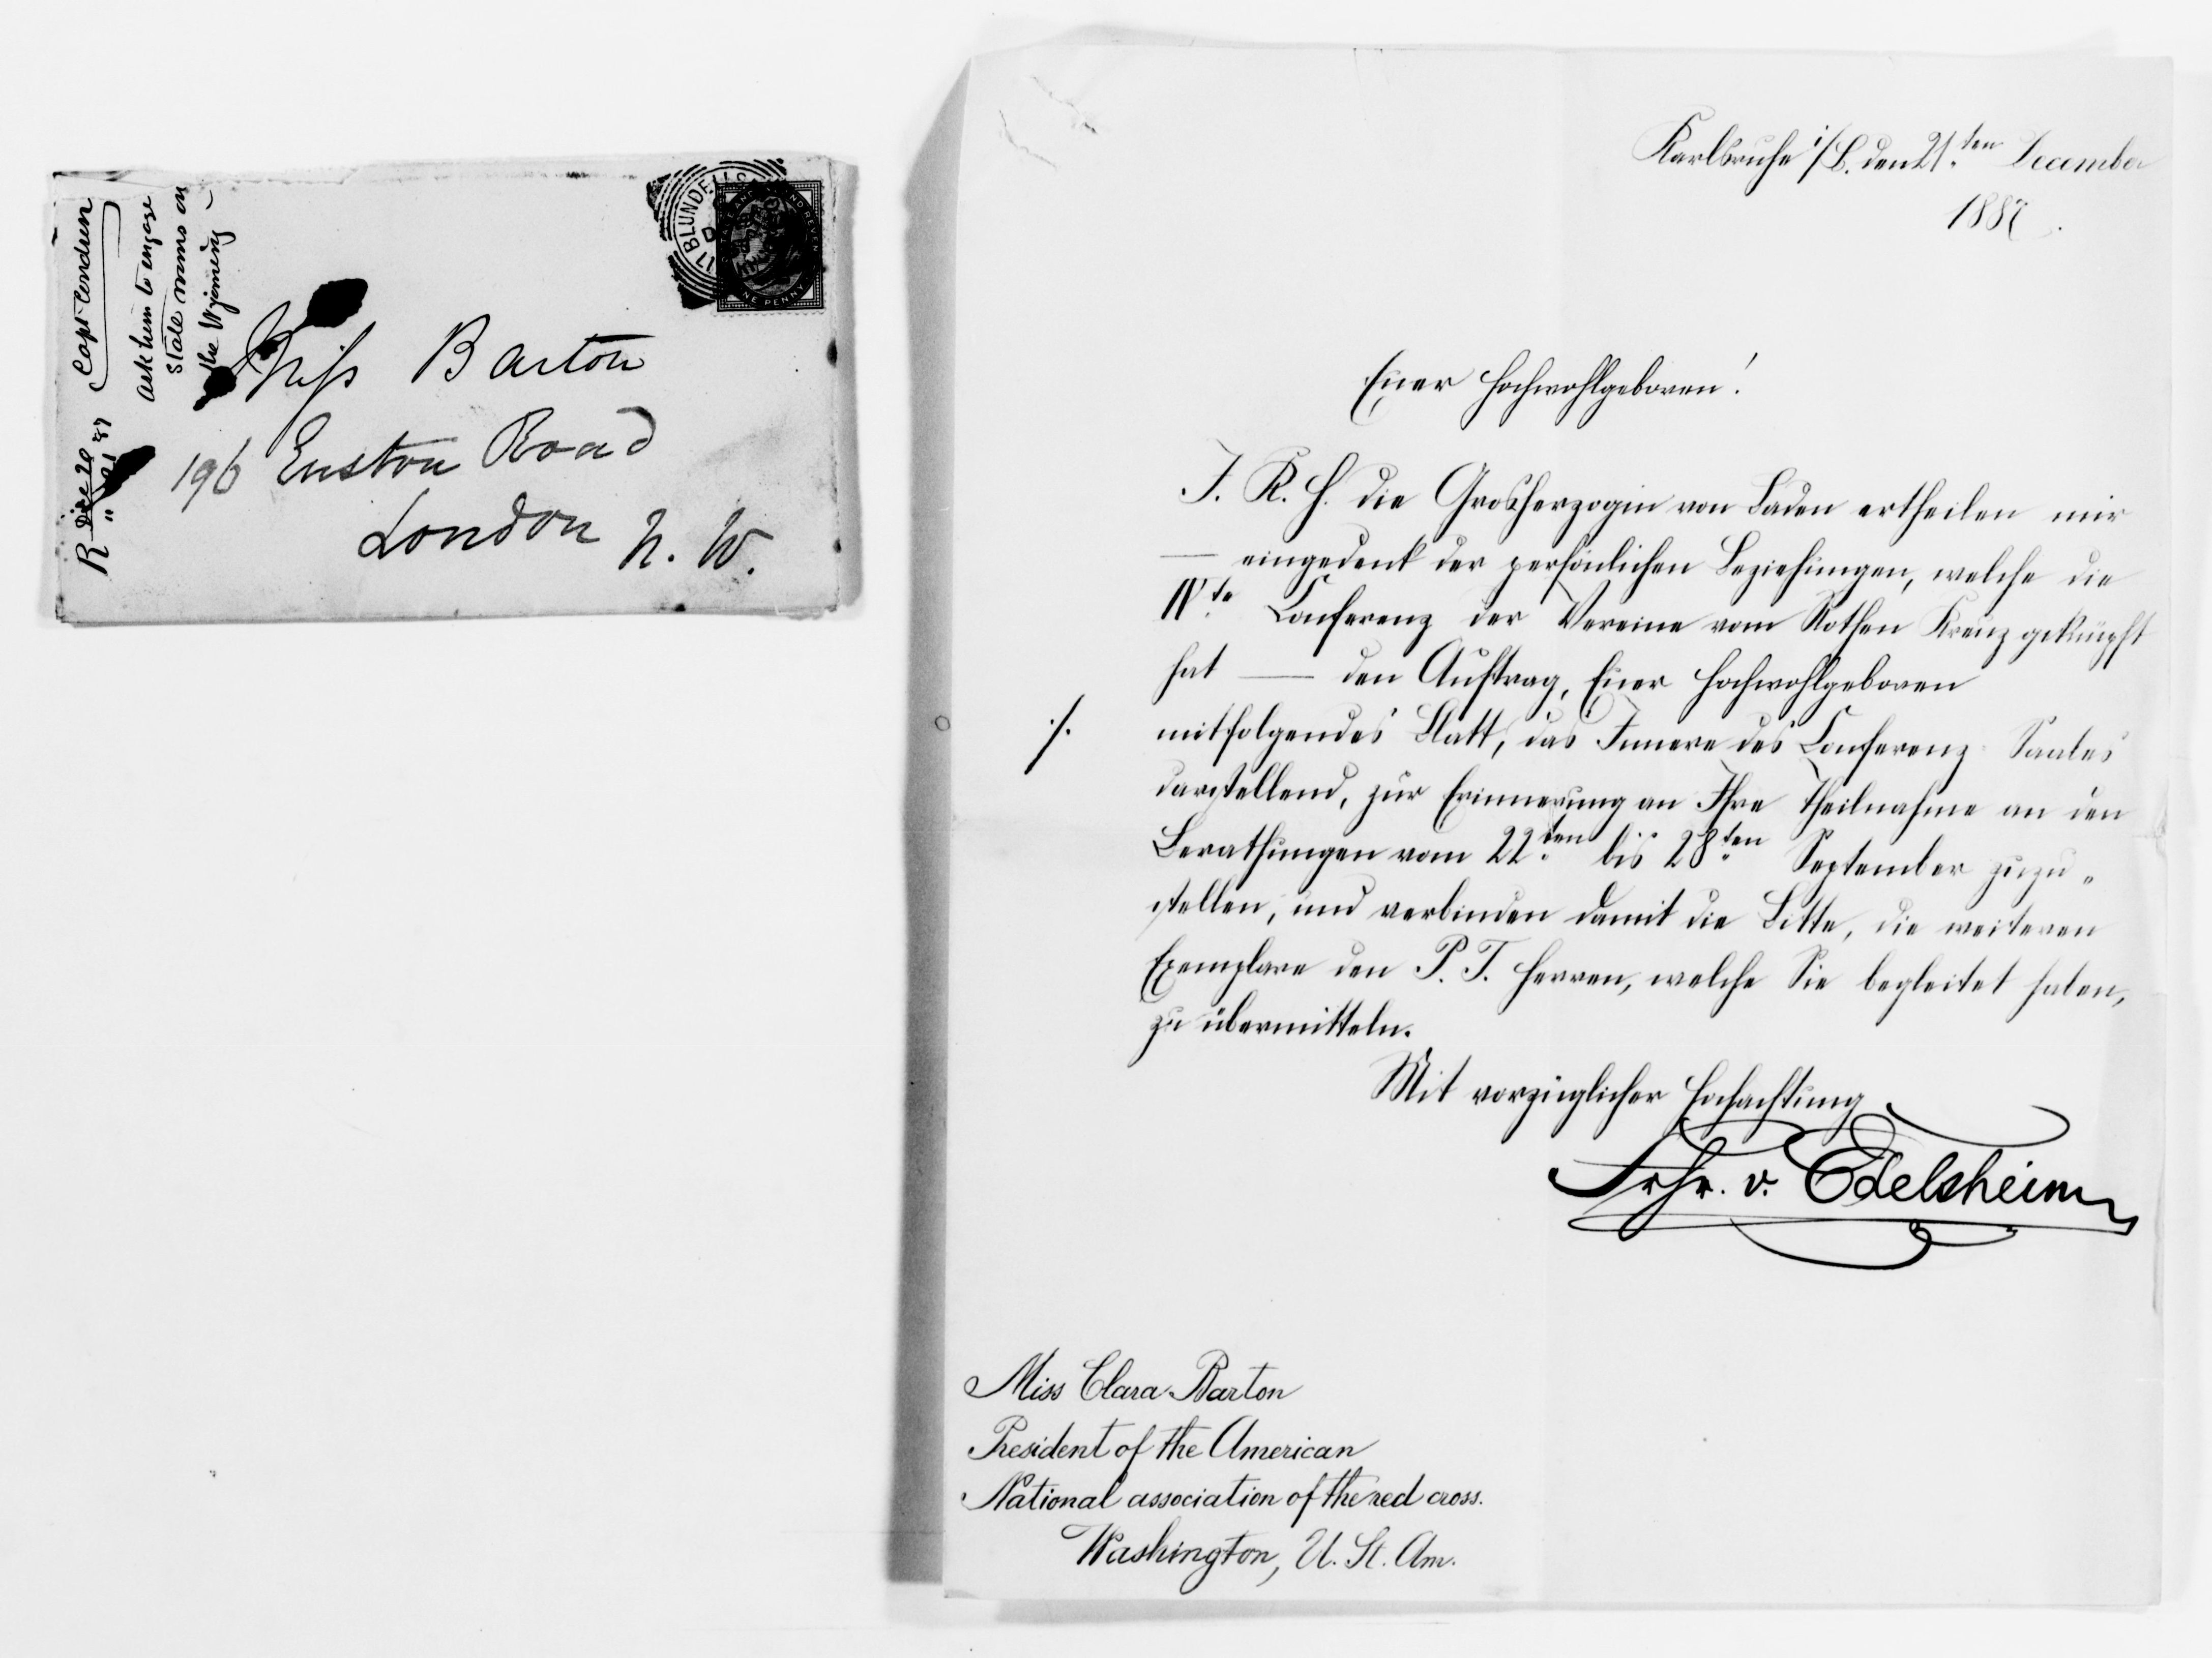 R Dece 20
" " 21 87
Capt Condren
Ask him to engage
State rooms on
the Wyoming –
BLUNDELL
ONE PENNY
Miss Barton
196 Euston Road
London N. W.
Karlsruhe i/B. den 21.ten December
1887.
Euer Hochwohlgeboren!
I. K. H. die Grosherzogin von Baden ertheilen mir
— eingedenk der persönlichen Beziehungen, welche die
IV.te Conferenz der Vereine vom Rothen Kreuz geknüpft
hat — den Auftrag, Euer Hochwohlgeboren
./. mitfolgendes Blatt, das Innere des Conferenz Saales
darstellend, zur Erinnerung an Ihre Theilnahme an den
Berathungen vom 22.ten bis 28.ten September zuzu-
stellen, und verbinden damit die Bitte, die weiteren
Exemplare den P. T. Herren, welche Sie begleitet haben,
zu übermitteln.
Mit vorzüglicher Hochachtung
Frhr. v. Edelsheim
Miss Clara Barton
President of the American
National association of the red cross.
Washington, U. St. Am.